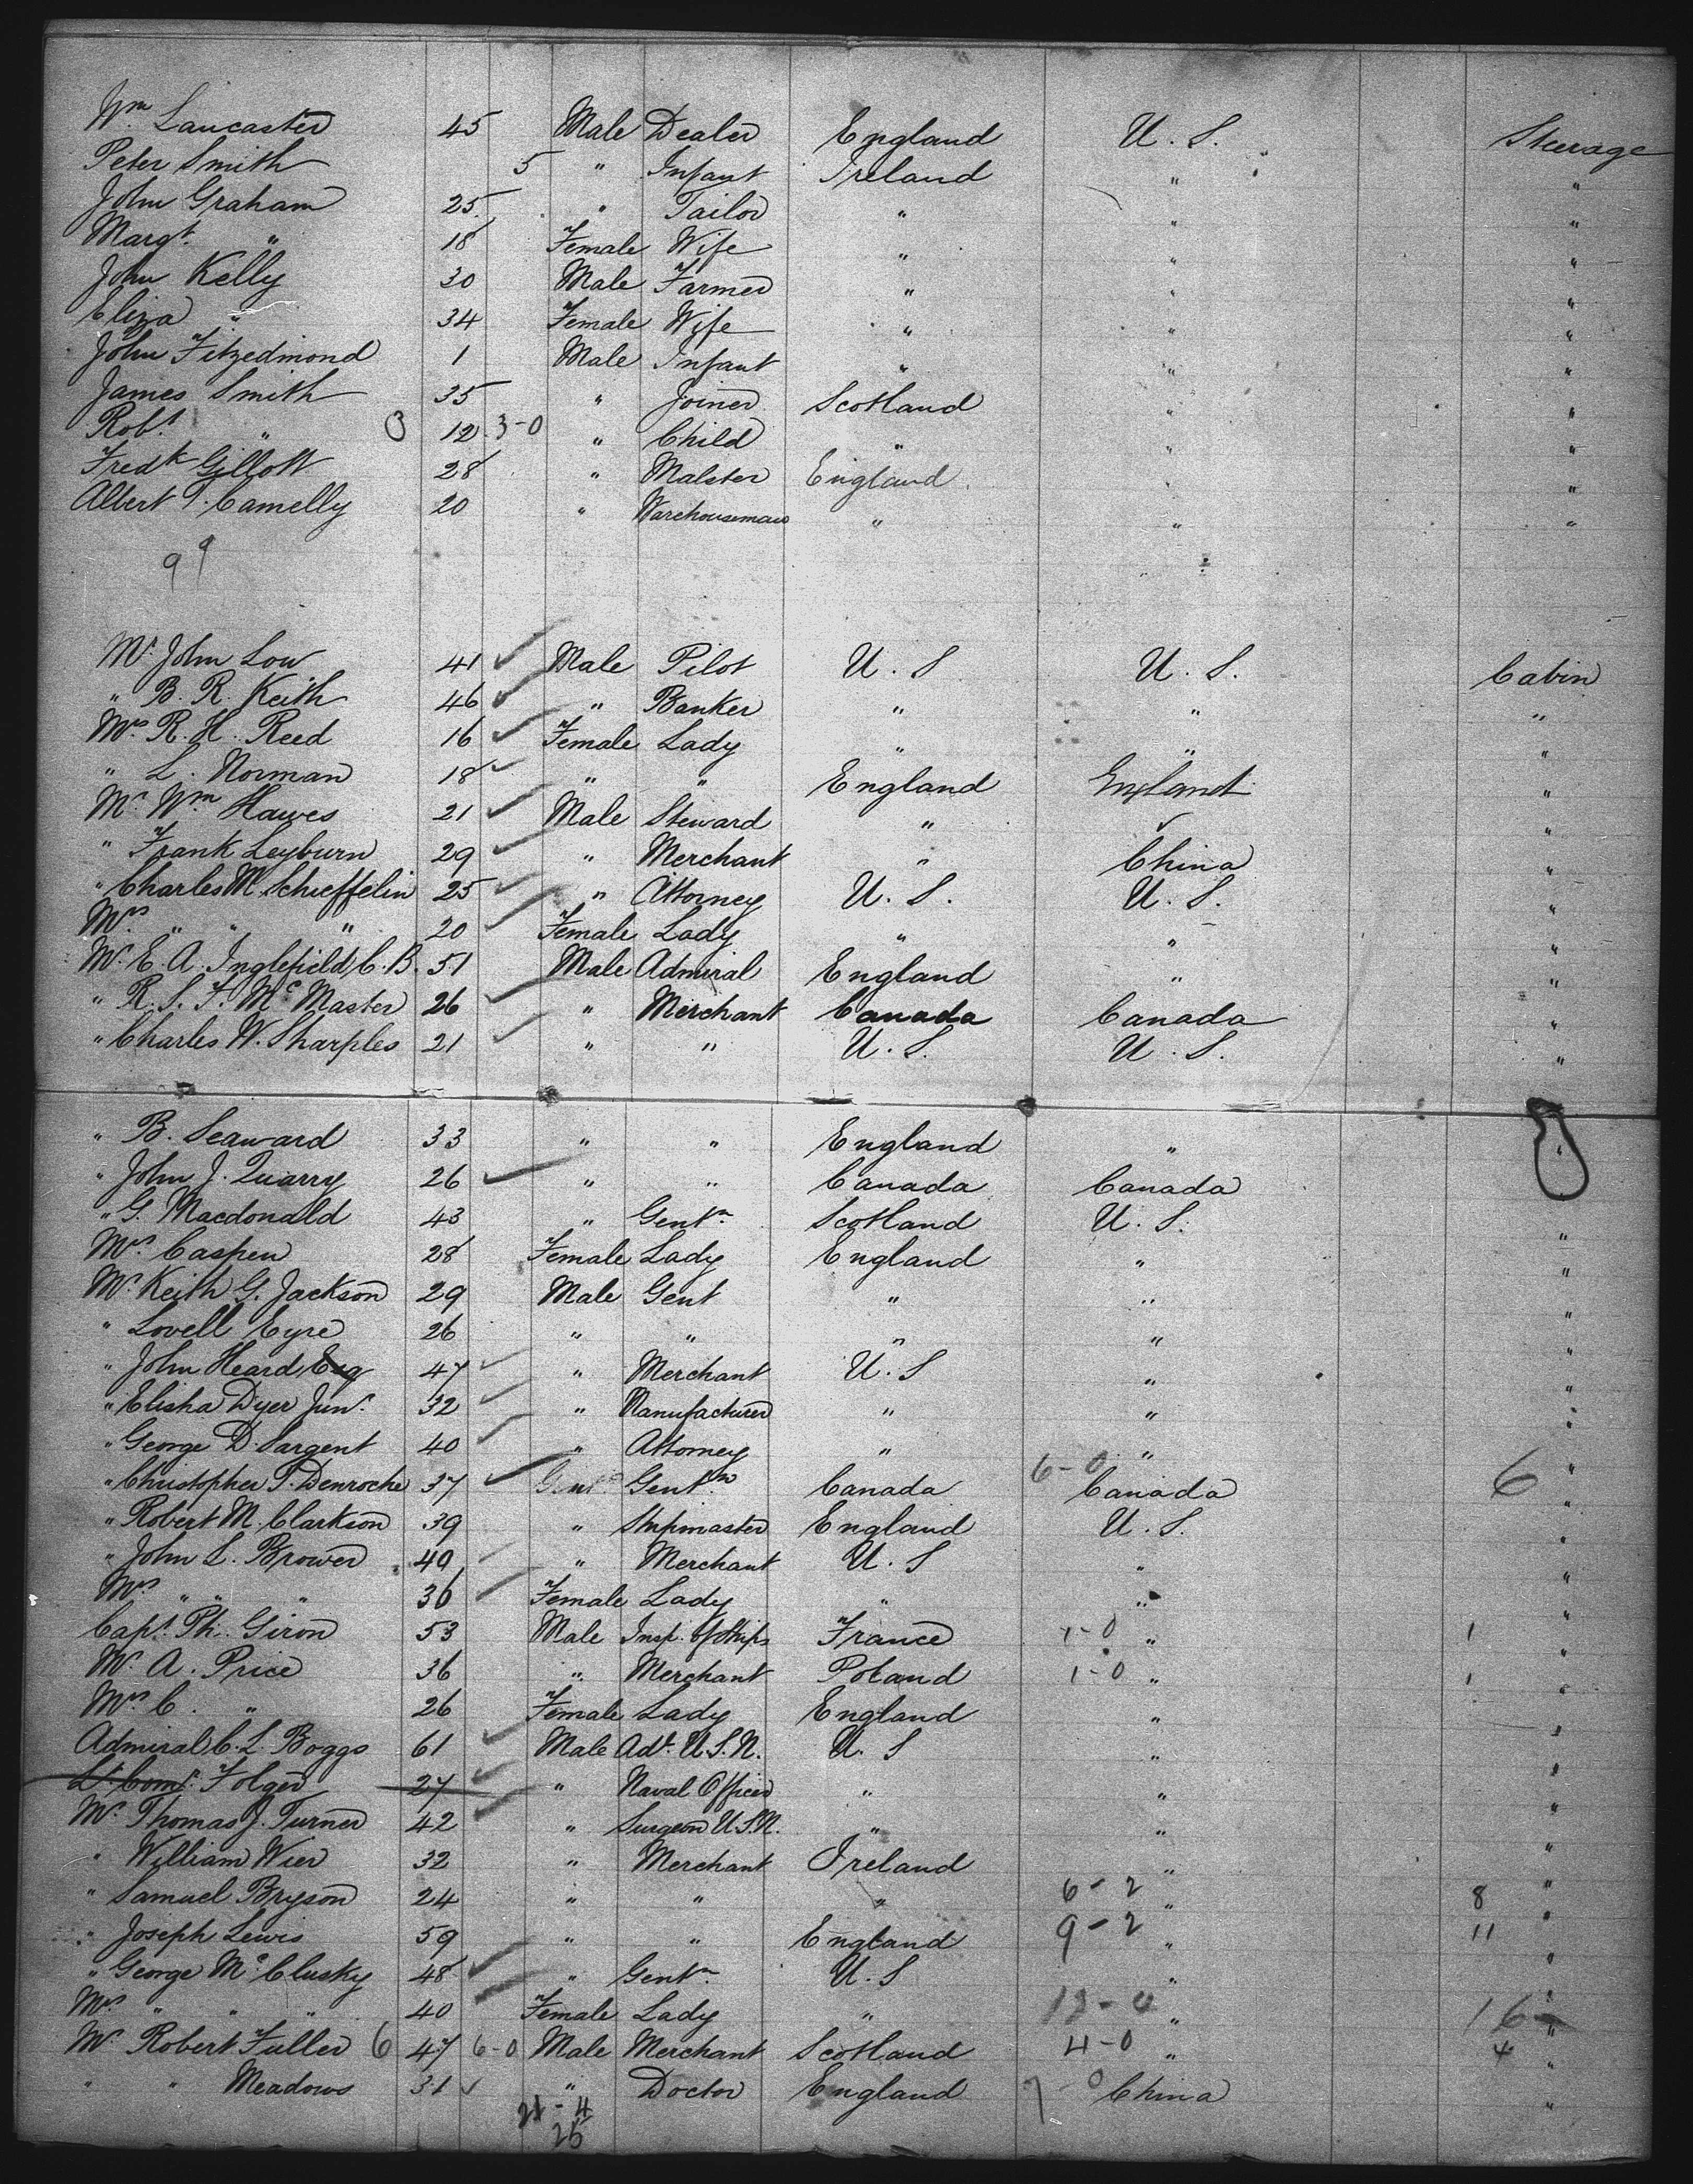 Wm Lancaster 45 Male Dealer England U. S. Steerage
Peter Smith 5 " Infant Ireland " "
John Graham 25 " Tailor " " "
Margt. " 18 Female Wife " " "
John Kelly 30 Male Farmer " " "
Eliza " 34 Female Wife " " "
John Fitzedmond 1 Male Infant " " "
James Smith 35 " Joiner Scotland " "
Robt. " 3 12 3-0 " Child " " "
Fredk Gillott 28 " Malster England " "
Albert T. Camelly 20 " Warehouseman " " "
99
Mr John Low 41 Male Pilot U. S U. S. Cabin
" B. R. Keith 46 " Banker " " "
Mrs R. H. Reed 16 Female Lady " " "
" L. Norman 18 " " England England "
Mr Wm Hawes 21 Male Steward " "
" Frank Leyburn 29 " Merchant " China "
" Charles M Schieffelin 25 " Attorney U. S. U. S. "
Mrs " " " 20 Female Lady " " "
Mr E. A. Inglefield C. B. 51 Male Admiral England " "
" R. S. F. Mc Master 26 " Merchant Canada Canada "
" Charles W. Sharples 21 " " U. S. U. S. "
" B. Seaward 33 " " England " "
" John J. Quarry 26 " " Canada Canada
" G. Macdonald 43 " Gentn. Scotland U. S. "
Mrs Caspen 28 Female Lady England " "
Mr Keith G. Jackson 29 Male Gent " " "
" Lovell Eyre 26 " " " " "
" John Heard 47 " Merchant U. S " "
" Elisha Dyer Junr. 32 " Manufacturer " " "
" George D Sargent 40 " Attorney " " "
" Christopher T. Denroche 37 Gentn Canada 6-0 Canada 6 "
" Robert M. Clarkson 39 " Shipmaster England U. S. "
" John L. Brower 40 " Merchant U. S " "
Mrs " " " 36 Female Lady " " "
Capt. Ph. Giron 53 Male Insp. of Ships France 1-0 " 1 "
Mr A. Price 36 " Merchant Poland 1-0 " 1 "
Mrs C. " 26 Female Lady England " "
Admiral C. L. Boggs 61 Male Adl. U. S. N. U. S " "
Lt. Comr. Folger 27 " Naval Officer " " "
Mr Thomas J. Turner 42 " Surgeon U. S. N. " " "
" William Wier 32 " Merchant Ireland " "
" Samuel Bryson 24 " " " 6-2 " 8 "
" Joseph Lewis 59 " " England 9-2 " 11 "
" George Mc Clusky 48 " Gentn. U. S " "
Mrs " " " 40 Female Lady " 12-0 " 16 "
Mr Robert Fuller 6 47 6-0 Male Merchant Scotland 4-0 " 4 "
" " Meadows 31 " Doctor England 7-0 China "
21-4
25